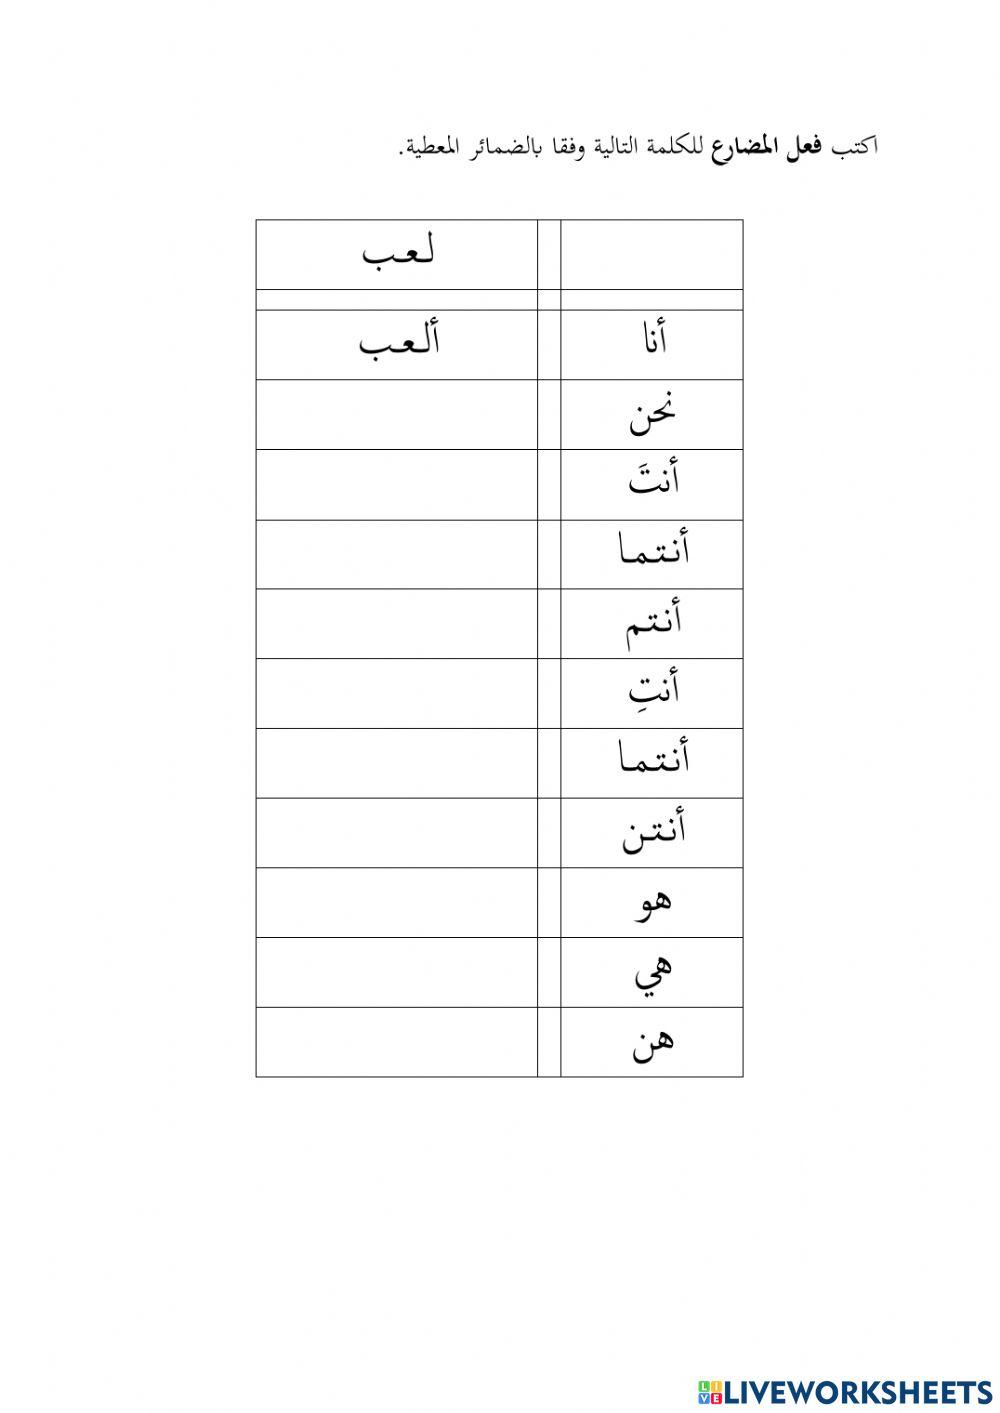 اكتب فعل المضارع للكلمة التالية وفقا بالضمائر المعطية.
لعب
أنا ألعب
نحن
أنتَ
أنتما
أنتم
أنتِ
أنتما
أنتن
هو
هي
هن
LIVE LIVEWORKSHEETS